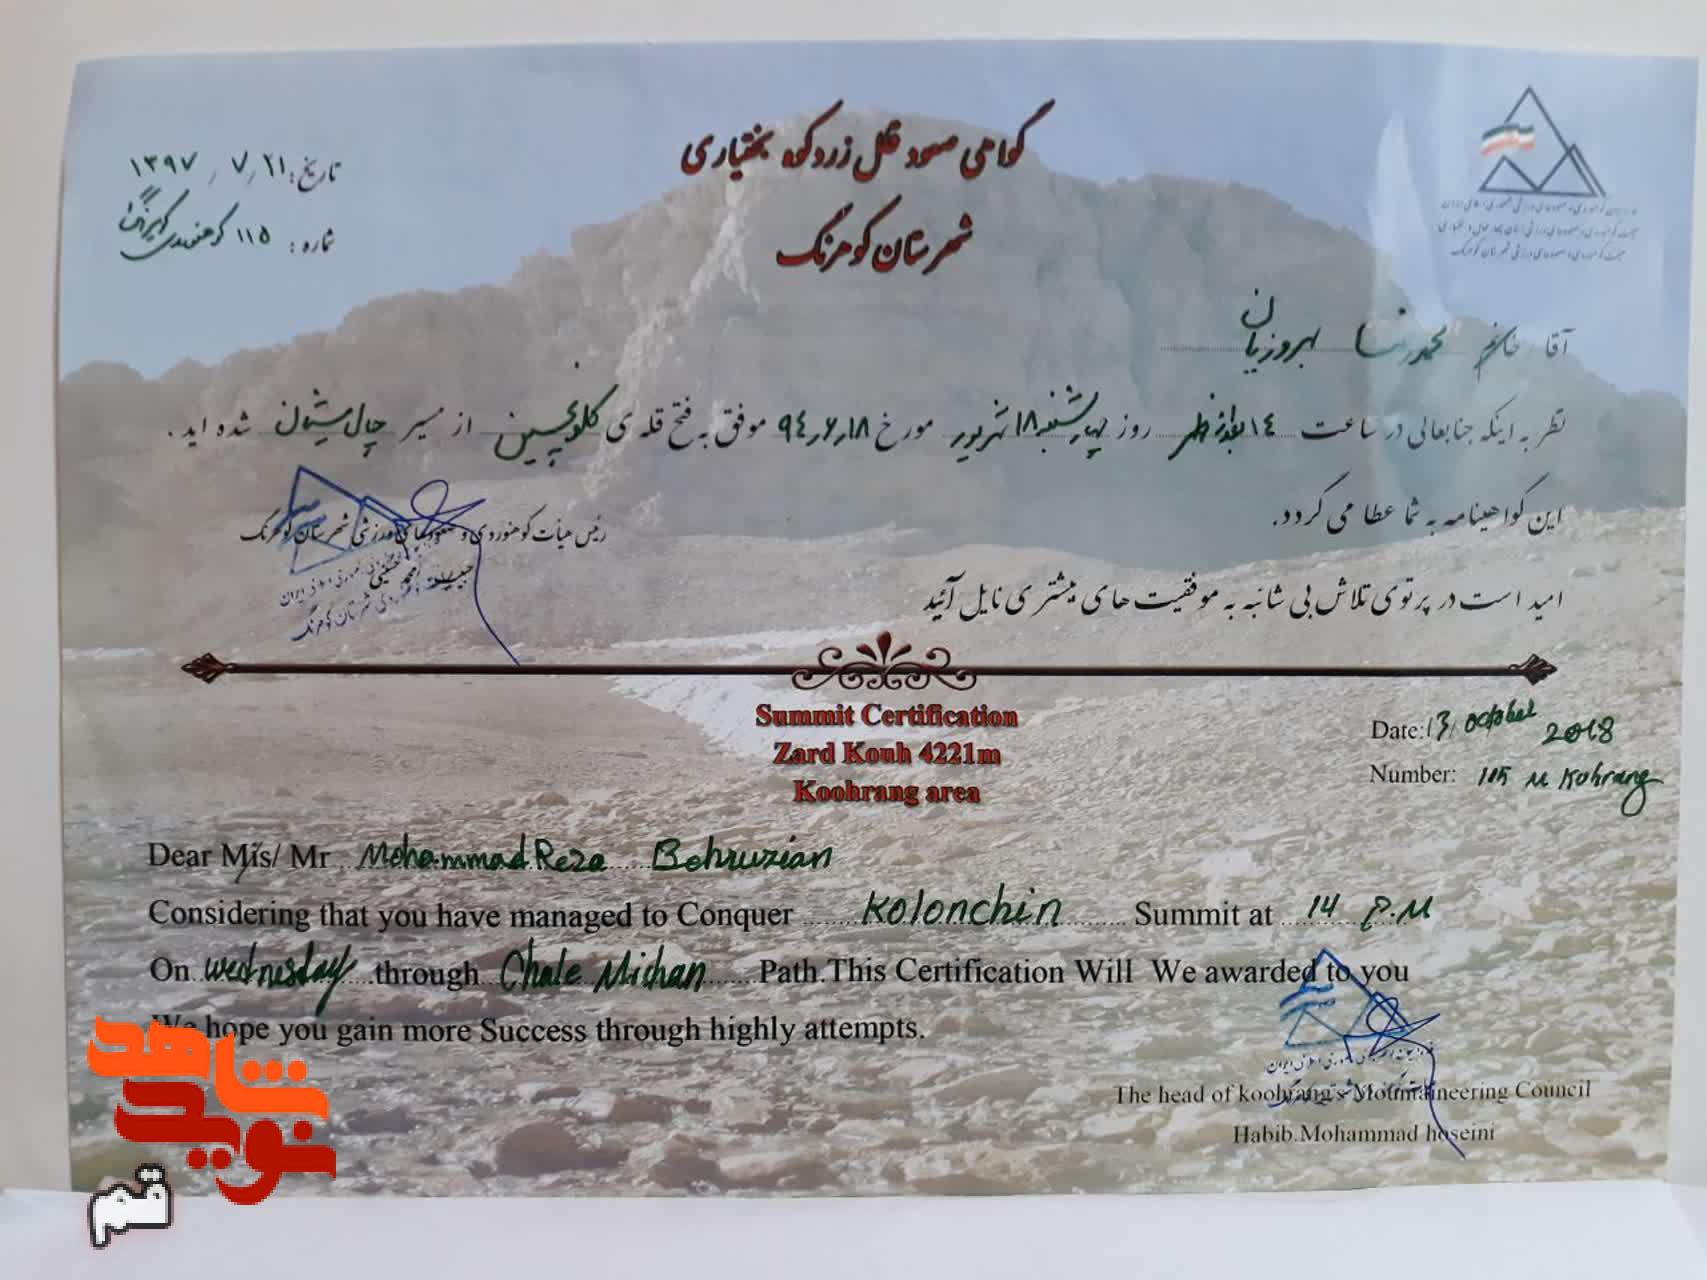 گواهی صعود قلل زردکوه بختیاری
شهرستان کوهرنگ
تاریخ: ۱۳۹۷/۷/۲۱
شماره: ۱۱۵ کوهنوردی کوهرنگ
آقا/خانم محمدرضا بهروزیان
نظر به اینکه جنابعالی در ساعت ۱۴ بعدازظهر روز چهارشنبه ۱۸ شهریور مورخ ۹۴٫۶٫۱۸ موفق به فتح قله ی کلونچین از مسیر چال میشان شده اید.
این گواهینامه به شما عطا می گردد.
رئیس هیأت کوهنوردی و صعودهای ورزشی شهرستان کوهرنگ
امید است در پرتوی تلاش بی شائبه به موفقیت های بیشتری نایل آئید
Summit Certification
Zard Kouh 4221m
Koohrang area
Date: 13/ october 2018
Number: 115 M Kohrang
Dear Mis/ Mr Mohammad Reza Behruzian
Considering that you have managed to Conquer Kolonchin Summit at 14 P.M
On wednesday through Chale Mishan Path.This Certification Will We awarded to you
We hope you gain more Success through highly attempts.
The head of koohrang's Mountaineering Council
Habib.Mohammad hoseini
نوید شاهد
قم